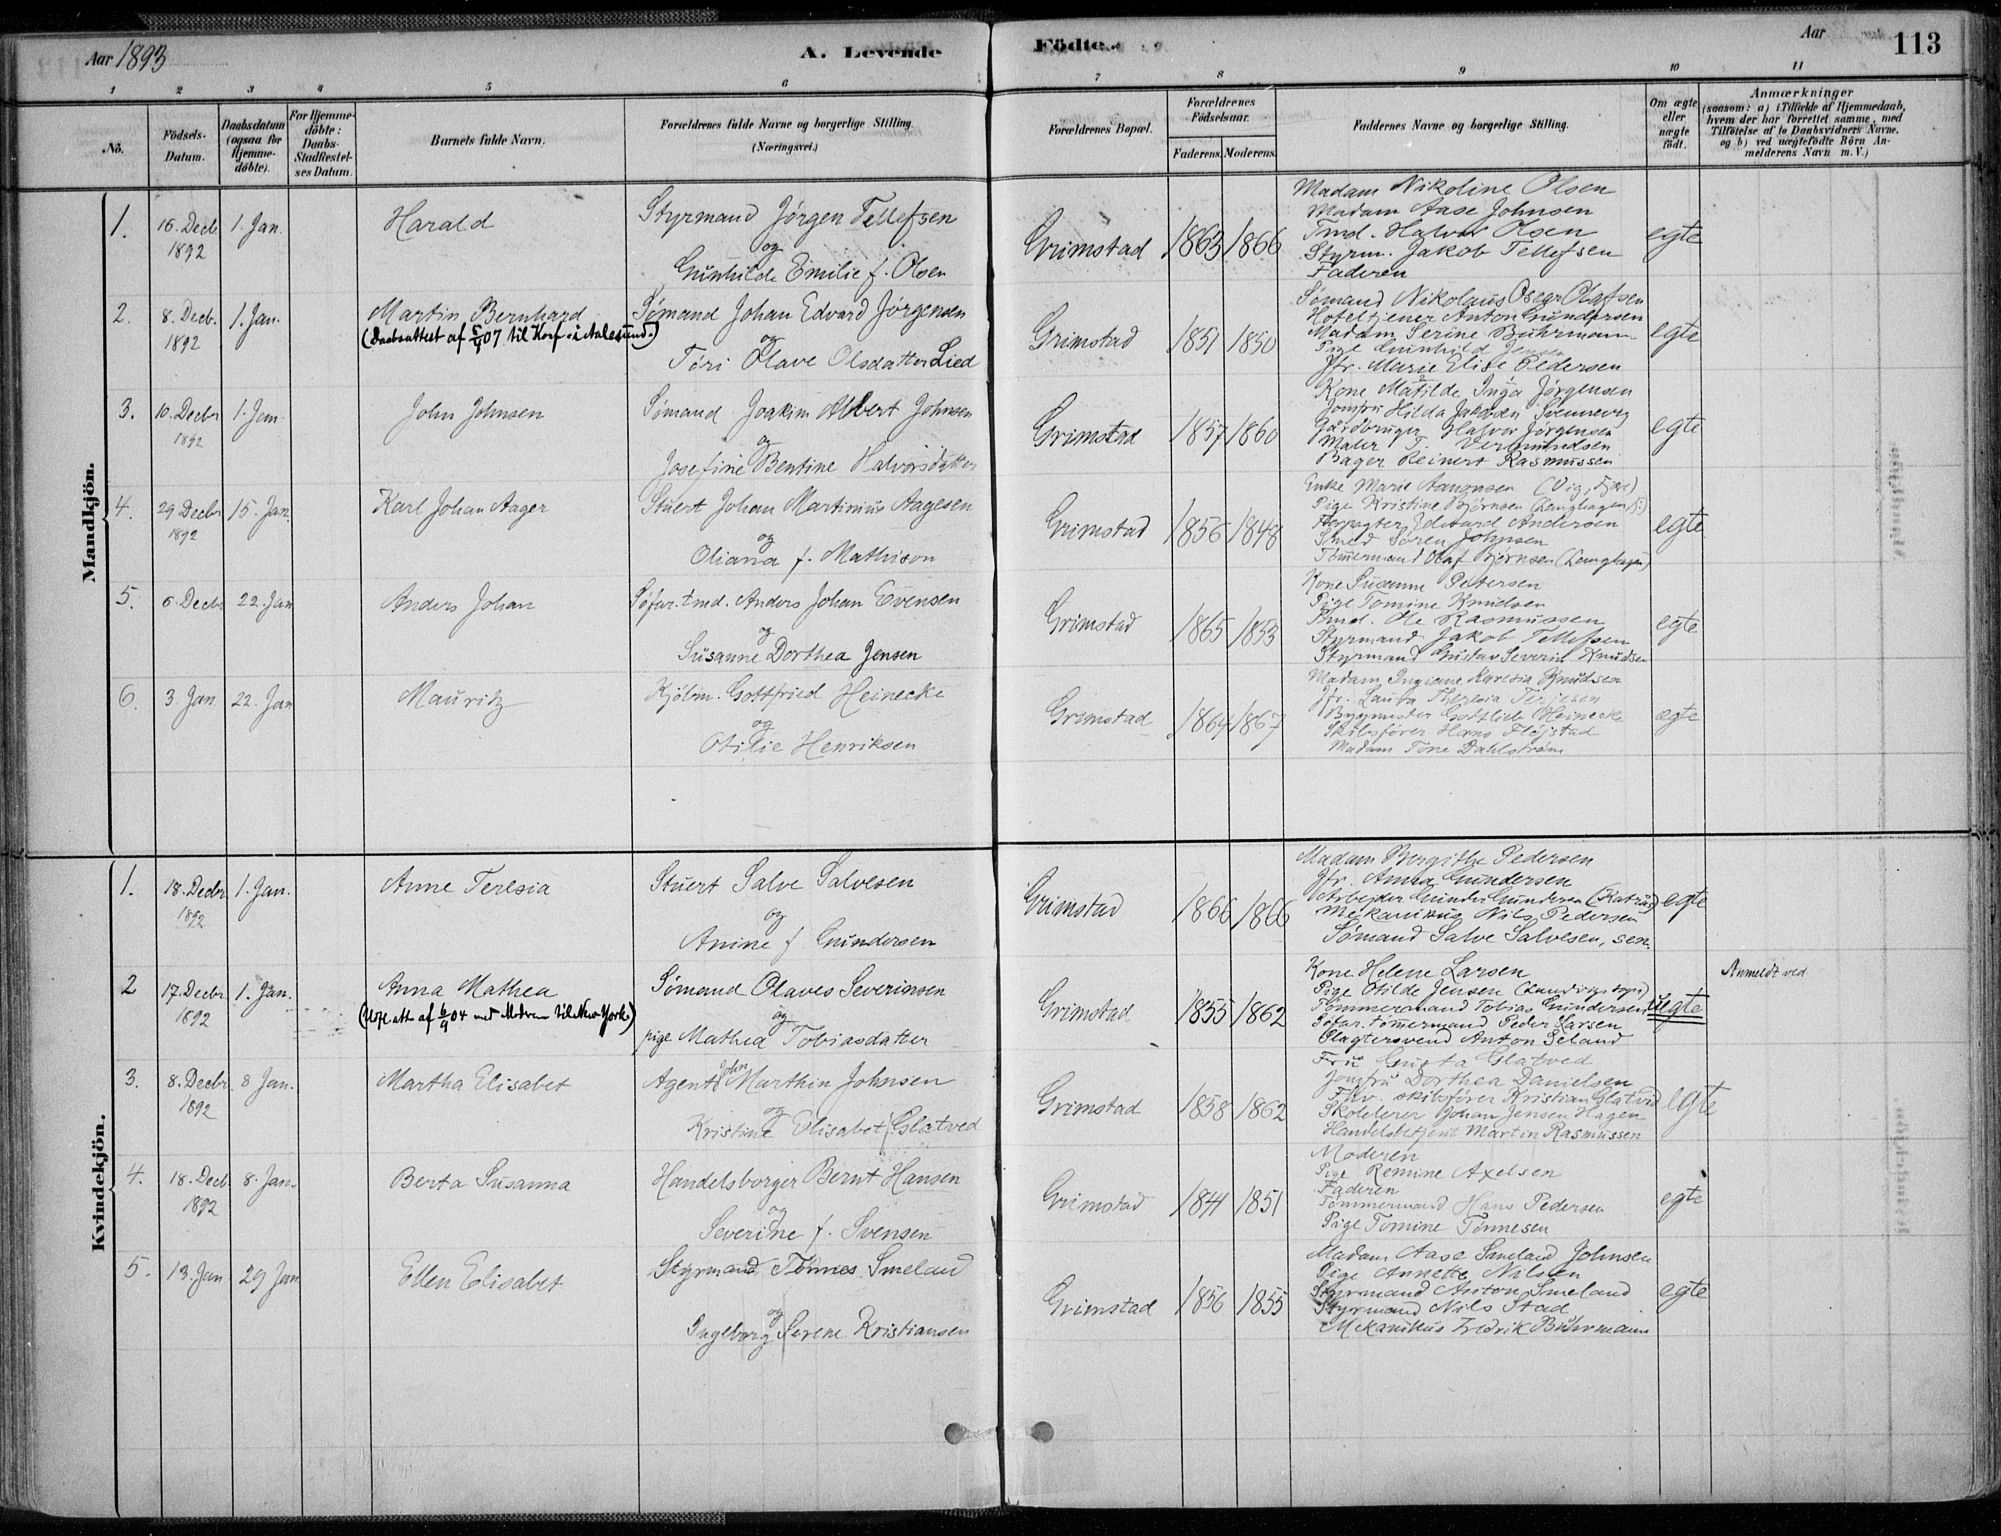 Aar 1893
A. Levende
Födte.
Aar
113
1 2 3 4 5 6 7 8 9 10 11
No.
Födsels-Datum.
Daabsdatum (ogsaa for Hjemme-döbte).
For Hjemme-döbte: Daabs-Stadfæstel-ses Datum.
Barnets fulde Navn.
Forældrenes fulde Navne og borgerlige Stilling. (Næringsvei.)
Forældrenes Bopæl.
Forældrenes Födselsaar.
Faderens. Moderens.
Faddernes Navne og borgerlige Stilling.
Om ægte eller uægte födt.
Anmærkninger
(saasom: a) i Tilfælde af Hjemmedaab,
hvem der har forrettet samme, med
Tilföielse af to Daabsvidners Navne,
og b) ved uægtefödte Börn An-
melderens Navn m. V.)
Mandkjön.
1. 16. Decb. 1892 1. Jan. Harald
Styrmand Jørgen Tellefsen
og
Gunhilde Emilie f. Olsen
Grimstad 1863 1866
Madam Nikoline Olsen
Madam Aase Johnsen
Tmd. Halvor Olsen
Styrm. Jakob Tellefsen
Faderen
egte
2. 8. Decb. 1892 1. Jan. Martin Bernhard
(Daabsattest af 5/4 07 til Konf. i Aalesund.)
Sømand Johan Edvard Jørgensen
og
Tøri Olave Olsdatter Lied
Grimstad 1851 1850
Sømand Nikolaus Oscar Olafsen
Hoteltjener Anton Gundersen
Madam Serine Buhrmann
Pige Gunhild Jensen
Jfr. Marie Elise Pedersen
egte
3. 10. Decbr 1892 1. Jan. John Johnsen
Sømand Joakim Albert Johnsen
og
Josefine Bentine Halvorsdatter
Grimstad 1857 1860
Kone Matilde Inga Jørgensen
Jomfru Hilda Jakobsen Svennevig
Gårdbruger Halvor Jørgensen
Maler T. Vermundsen
Bager Reinert Rasmussen
egte
4. 29 Decbr 1892 15. Jan. Karl Johan Aager
Stuert Johan Martinius Aagesen
og
Oliana f. Mathison
Grimstad 1856 1848
Enke Marie Aanonsen
Pige Kristine Bjørnsen
Forpagter Edvard Andersen
Smed Søren Johnsen
Tømmermand Olaf Bjørnsen
egte
5. 6. Decbr 22. Jan Anders Johan
Søfar. tmd. Anders Johan Evensen
og
Susanne Dorthea Jensen
Grimstad 1865 1853
Kone Susanne Petersen
Pige Tomine Knudsen
Tmd. Ole Rasmussen
Styrmand Jakob Tellefsen
Styrmand Gustav Severin Knudsen
egte
6. 3 Jan 22. Jan Mauritz
Kjölm. Gottfried Heinecke
og
Otilie Henriksen
Grimstad 1864 1867
Madam Ingiane Karesia Knudsen
Jfr. Laura Theresia Terjesen
Bygmester Gottlieb Heinecke
Skibsfører Hans Fløjstad
Madam Tone Dahlstrøm
ægte
Kvindekjön.
1. 18. Decbr 1892 1. Jan. Anne Teresia
Stuert Salve Salvesen
og
Anine f. Gundersen
Grimstad 1866 1866
Madam Bergithe Pedersen
Jfr. Anna Gundersen
Arbejder Gunder Gundersen
Mekanikus Nils Pedersen
Sømand Salve Salvesen, sen.
egte
2 17. Decbr. 1892 1. Jan. Anna Mathea
Sømand Olaves Severinsen
og
pige Mathea Tobiasdatter
Grimstad 1855 1862
Kone Helene Larsen
Pige Otilde Jensen
Tømmermand Tobias Gundersen
Søfar. tømmermand Peder Larsen
Slagtersvend Anton Seland
uegte
Anmeldt ved
3. 8. Decbr. 1892 8 Jan. Martha Elisabet
Agent John Marthin Johnsen
og
Kristine Elisabet f. Glatved
Grimstad 1858 1862
Fru Gusta Glatved
Jomfru Dorthea Danielsen
Fhv. skibsfører Kristian Glatved
Skolelærer Johan Jensen Hagen
Handelsbetjent Martin Rasmussen
egte
4. 18. Decb 1892 8. Jan. Berta Susanna
Handelsborger Bernt Hansen
og
Severine f. Svensen
Grimstad 1844 1851
Moderen
Pige Remine Axelsen
Faderen
Tømmermand Hans Pedersen
Pige Tomine Tønnesen
egte
5. 13. Jan 29 Jan Ellen Elisabet
Styrmand Tønnes Smeland
og
Ingeborg Serene Kristiansen
Grimstad 1856 1855
Madam Aase Smeland Johnsen
Pige Annette Nilsen
Styrmand Anton Smeland
Styrmand Nils Stad
Mekanikus Fredrik Buhrmann
egte